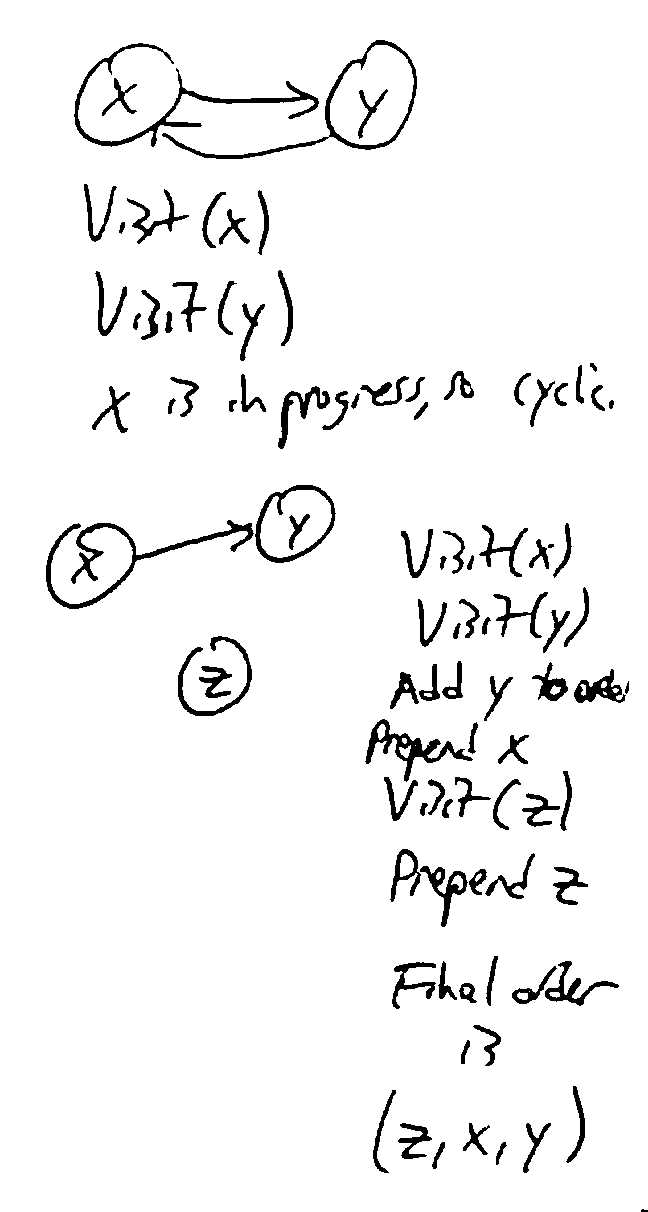 X
Y
Visit (x)
Visit (y)
X is in progress, so cyclic.
X
Y
Z
Visit (x)
Visit (y)
Add y to order
Prepend x
Visit (z)
Prepend z
Final order
is
(z, x, y)